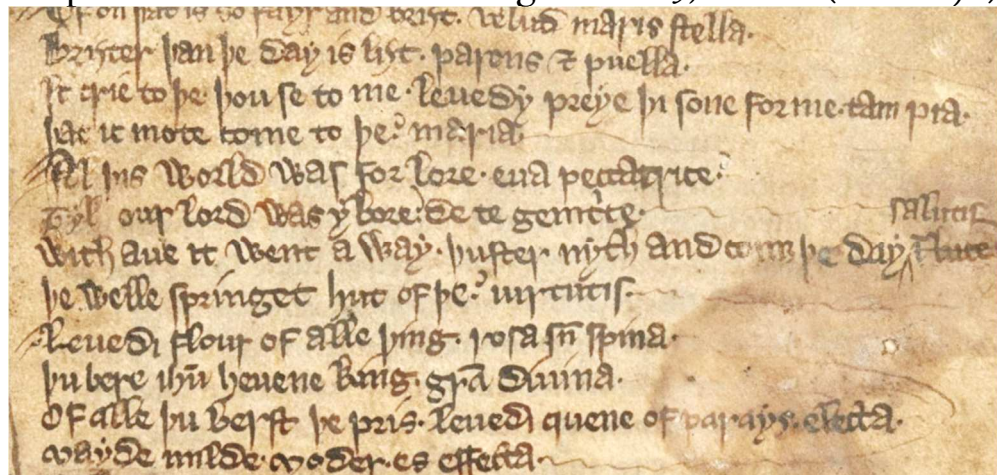 Of on þat is so fayr and briȝt. velud maris stella.
Briȝter þan þe day is liȝt. parens & puella.
Ic crie to þe. þou se to me. leuedy preye þi sone for me. tam pia.
þat ic mote come to þe. maria
Al þis world was for lore. eua peccatrice.
Tyl our lord was y bore. de te genitrice.
with aue it went a way. þuster nyth and comȝ þe day, salutis
þe welle springet hut of þe. uirtutis.
Leuedi flour of alle þing. rosa sn̄ spina.
þu bere ihū heuene king. gra͞ diuina.
Of alle þu berst þe pris. leuedi quene of parays. electa.
mayde milde. moder. es effecta.